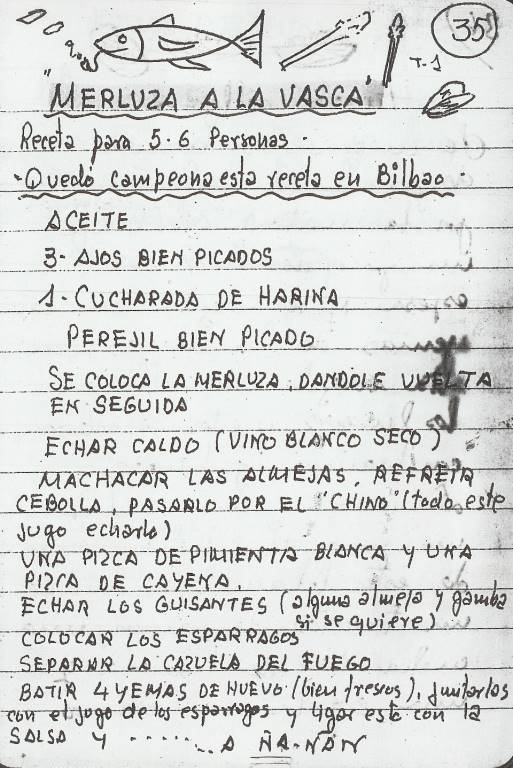 35
T-1
"MERLUZA A LA VASCA"
Receta para 5-6 Personas.
-Quedó campeona esta receta en Bilbao.
ACEITE
3- AJOS BIEN PICADOS
1- CUCHARADA DE HARINA
PEREJIL BIEN PICADO
SE COLOCA LA MERLUZA, DANDOLE VUELTA
EN SEGUIDA
ECHAR CALDO (VINO BLANCO SECO)
MACHACAR LAS ALMEJAS, REFREIR
CEBOLLA, PASARLO POR EL "CHINO" (todo este
jugo echarlo)
UNA PIZCA DE PIMIENTA BLANCA Y UNA
PIZCA DE CAYENA.
ECHAR LOS GUISANTES (alguna almeja y gamba
si se quiere)
COLOCAR LOS ESPARRAGOS
SEPARAR LA CAZUELA DEL FUEGO
BATIR 4 YEMAS DE HUEVO (bien frescos), juntarlas
con el jugo de los esparragos y ligar esto con la
SALSA Y ........ A ÑA-ÑAN